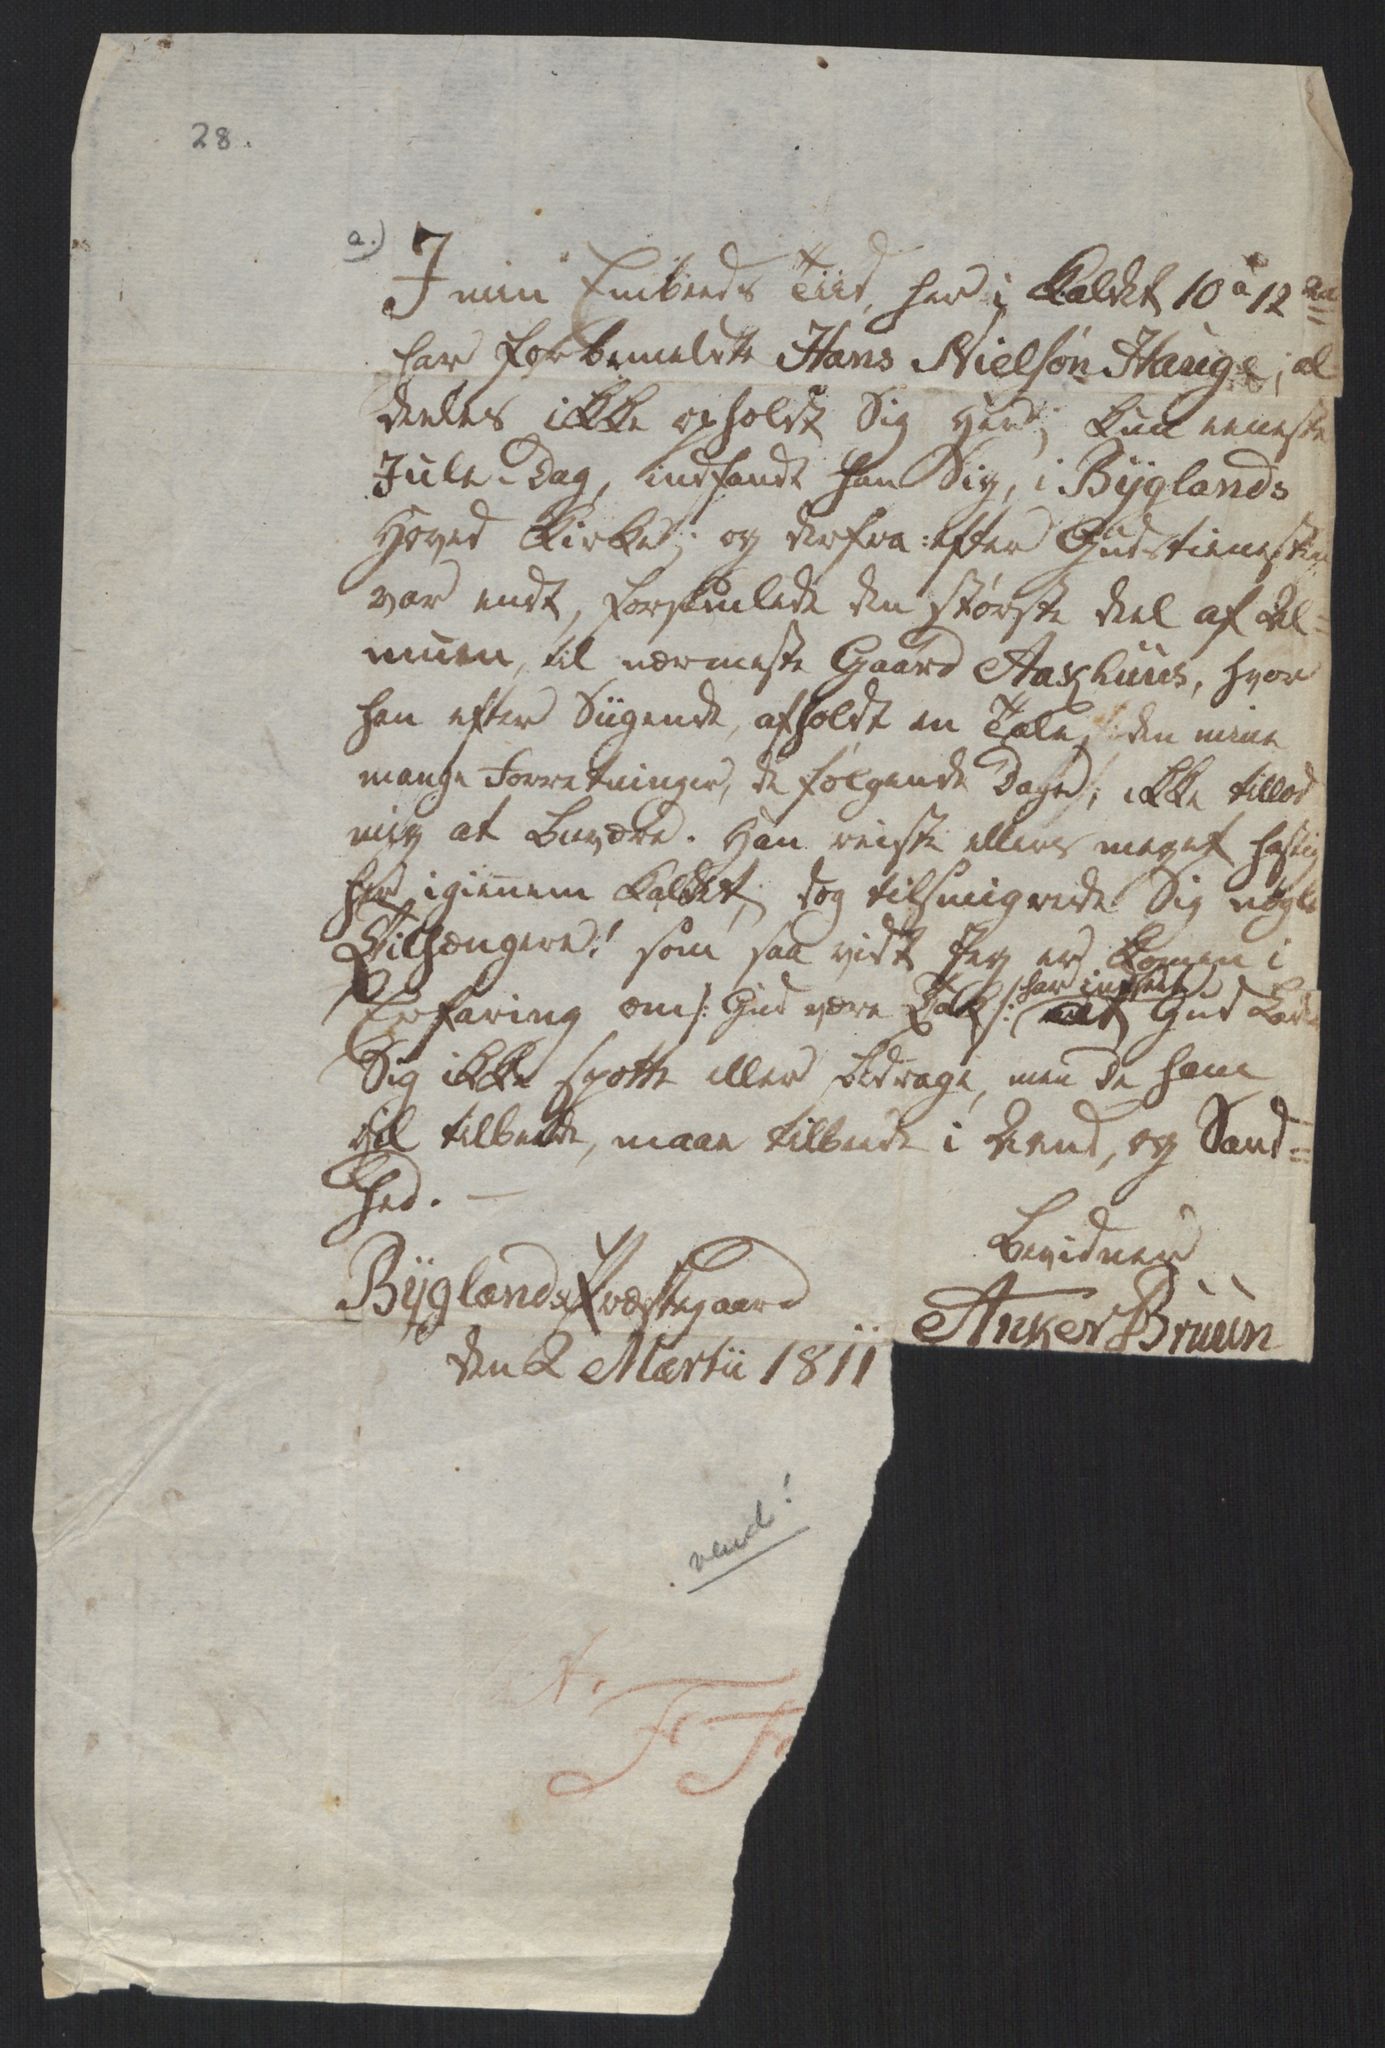 28.
a.) I min Embeeds Tiid, her i Kaldet 10 à 12
har forbemelte Hans Nielsøn Hauge, al
deeles ikke opholdt Sig her; kun eeneste
Jule-Dag, indfandt han Sig, i Bÿglands
Hoved Kirke; og derfra: efter Gudstienesten
var endt, forsamlede den største deel af Al=
muen, til nærmeste Gaard Aakhuus, hvor
han efter Siigende, afholdt en Tale, den mine
mange Forretninger, de følgende Dage, ikke tillod
mig at bievære. Han reiste ellers meget hastig
her igiennem Kaldet, dog tilsmigrede Sig nogle
Tilhængere! som saa vidt Jeg er komen i
Erfaring om /: Gud være Tak :/ har indseet
at Gud lader
Sig ikke spotte eller bedrage, men de ham
vil tilbede, maae tilbede i Aand, og Sand=
hed. —
Bevidner
Bÿglands Præstegaard
Anker Bruun
den 2 Martii 1811
vend!
F F